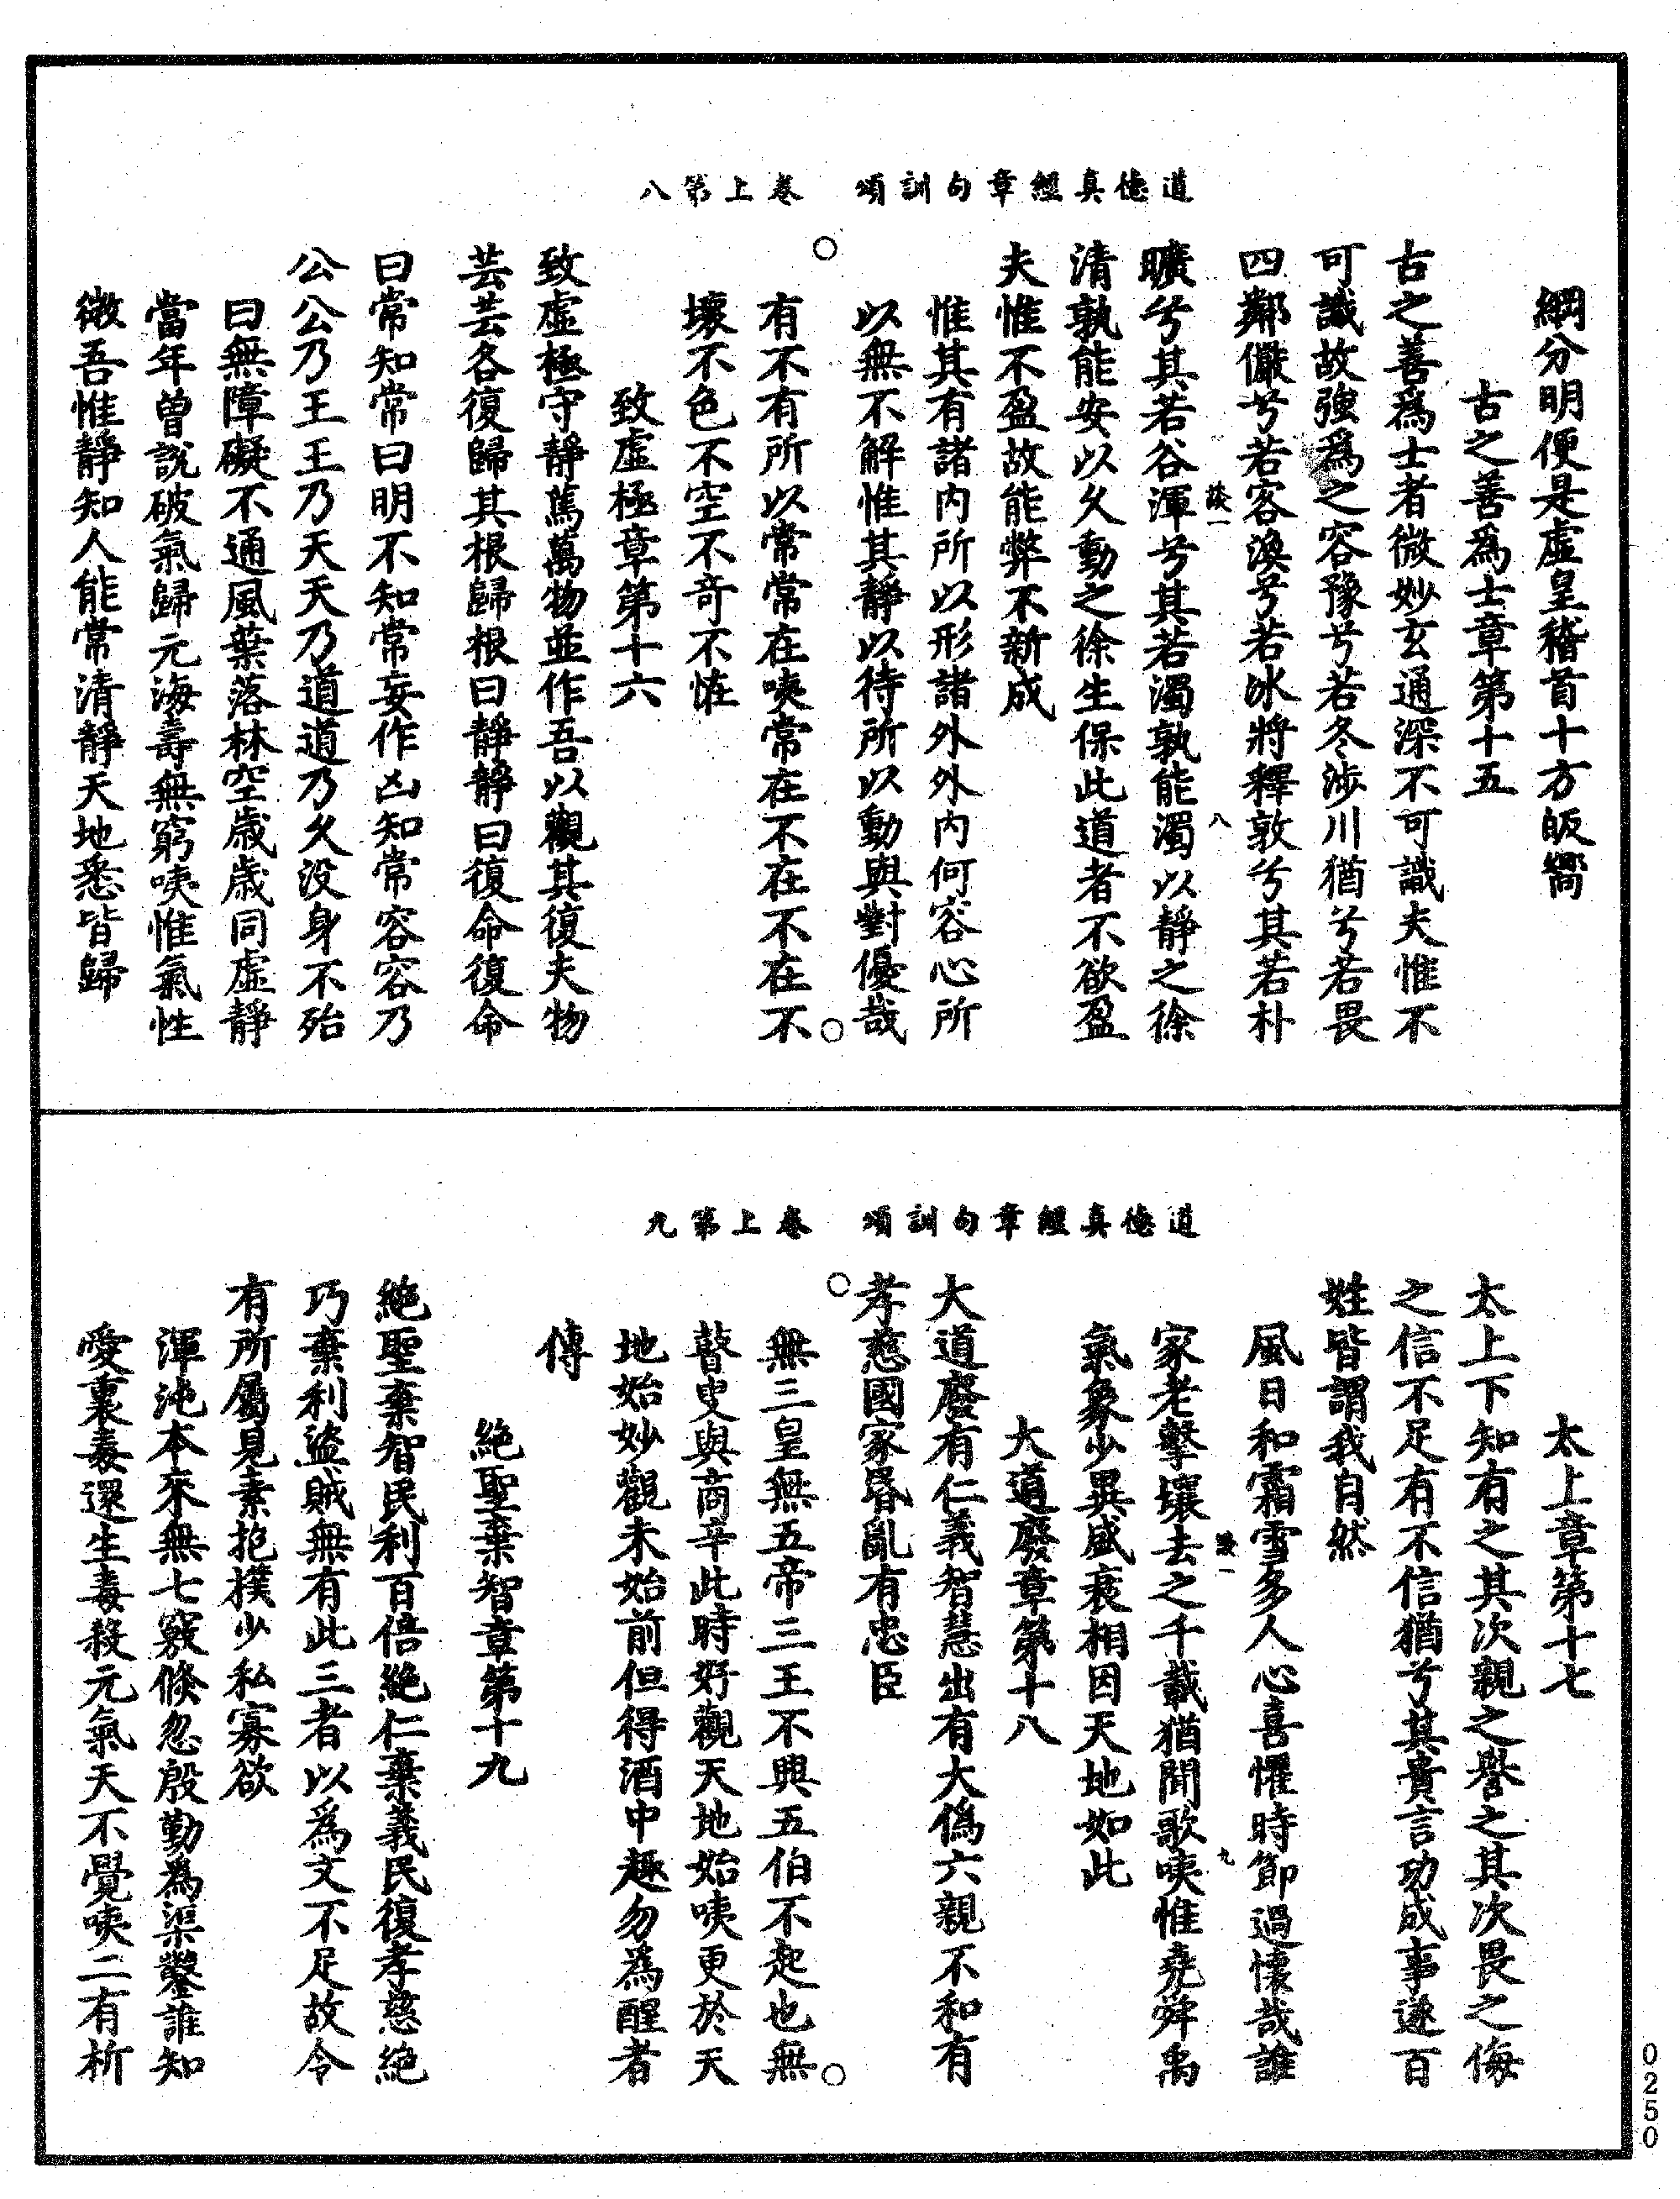 道德真經章句訓頌　卷上第八
綱分明便是虛皇稽首十方皈嚮
古之善為士章第十五
古之善為士者微妙玄通深不可識夫惟不
可識故強為之容豫兮若冬涉川猶兮若畏
四鄰儼兮若客渙兮若冰將釋敦兮其若朴
談一　八
曠兮其若谷渾兮其若濁孰能濁以靜之徐
清孰能安以久動之徐生保此道者不欲盈
夫惟不盈故能弊不新成
惟其有諸内所以形諸外外内何容心所
以無不解惟其靜以待所以動與對優哉
有不有所以常常在咦常在不在不在不
壞不色不空不奇不恠
致虛極章第十六
致虛極守靜篤萬物並作吾以觀其復夫物
芸芸各復歸其根歸根曰靜靜曰復命復命
曰常知常曰明不知常妄作凶知常容容乃
公公乃王王乃天天乃道道乃久没身不殆
曰無障礙不通風葉落林空歲歲同虛靜
當年曾說破氣歸元海壽無窮咦惟氣性
微吾惟靜知人能常清靜天地悉皆歸
道德真經章句訓頌　卷上第九
太上章第十七
太上下知有之其次親之譽之其次畏之侮
之信不足有不信猶兮其貴言功成事遂百
姓皆謂我自然
風日和霜雪多人心喜懼時節過懷哉誰
談一　九
家老擊壤去之千載猶聞歌咦惟堯舜禹
氣象少異盛衰相因天地如此
大道廢章第十八
大道廢有仁義智慧出有大偽六親不和有
孝慈國家昬亂有忠臣
無三皇無五帝三王不興五伯不起也無
瞽叟與商辛此時好觀天地始咦更於天
地始妙觀未始前但得酒中趣勿為醒者
傳
絕聖棄智章第十九
絕聖棄智民利百倍絕仁棄義民復孝慈絕
巧棄利盜賊無有此三者以為文不足故令
有所屬見素抱樸少私寡欲
渾沌本來無七竅倏忽殷勤為渠鑿誰知
愛裏毒還生毒殺元氣天不覺咦二有析
0250